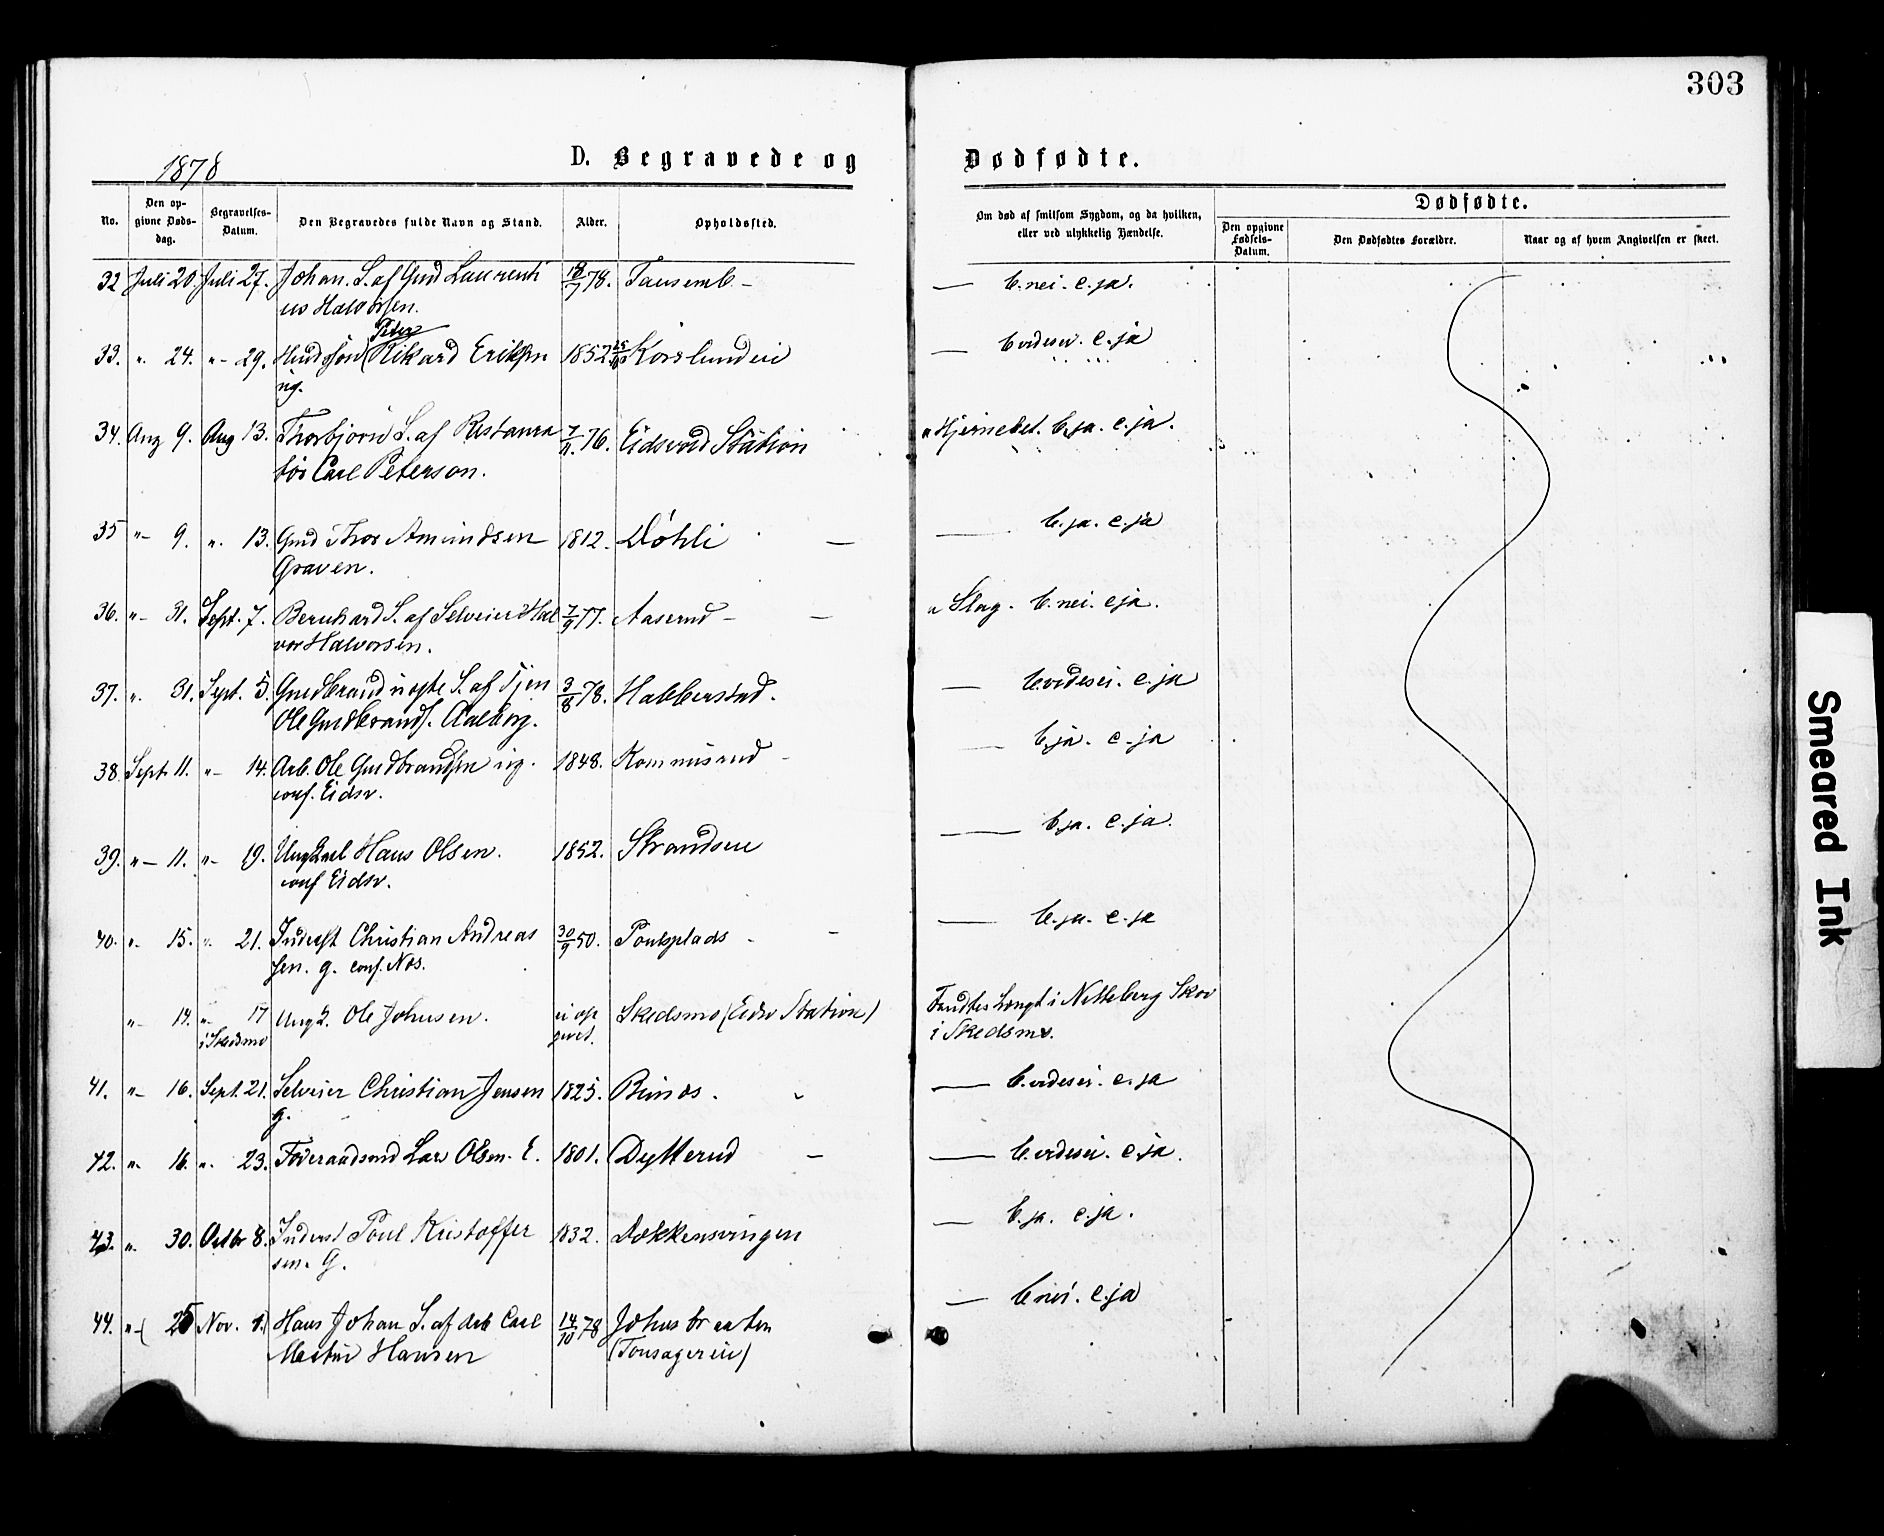 303
1878
D. Begravede og Dødfødte.
No.
Den opgivne Dødsdag.
Begravelses-Datum.
Den Begravedes fulde Navn og Stand.
Alder.
Opholdssted.
Om død af smitsom Sygdom, og da hvilken, eller ved ulykkelig Hændelse.
Dødfødte.
Den opgivne Fødsels-Datum.
Den Dødfødtes Forældre.
Naar og af hvem Angivelsen er skeet.
32 Juli 20. Juli 27. Johan. S. af Gmd Laurenti 18/7 78. Tausemb. — b. nei. c. ja.
us Halvorsen.
Peter
33. " 24. "- 29. Rikard Eriksen 1852 Korslundei — b. vides ei. c. ja
ug.
34. Aug 9. Aug 13. Thorbjørn S. af Restaura 7/11 76. Eidsvold Station " Hjernebet. b. ja. c. ja.
tør Carl Peterson.
35 "- 9. ". 13. Gmd Thor Amundsen 1812. Døhli — b. ja. c. ja
Graven.
36. "- 31. Sept. 7. Bernhard S. af Selveier Hal 7/9 77. Aaserud — " Slag. b. nei. c ja.
vor Halvorsen.
37. ". 31. Sept. 5. Gudbrand S. af Tjen 3/8 78. Habberstad. — b. vides ei. c. ja
Ole Gudbrands. Aalborg.
38. Sept 11. "- 14. Arb. Ole Gudbrandsen ug. 1848. Kommisrud — b. ja. c. ja
conf. Eidsv.
39. "- 11. "- 19. Ungkarl Hans Olsen. 1852. Strandsen — b. ja. c. ja.
conf Eidsv.
40. ". 15. " 21. Inderst Christian Andreas 30/9 50. Poulsplads — b. ja. c. ja
sen. g. conf. Næs.
"- 14. "- 17 Ungk. Ole Johnsen. ei op Skedsmo (Eidsv Station) Fandtes hængt i Nitteberg Skov
i Skedsmo givet. i Skedsmo.
41. "- 16. Sept. 21. Selveier Christian Jensen 1825. — b. vides ei. c. ja
g.
42. ". 16. ". 23. Føderaadsmd Lars Olsen. E. 1801. Dytterud — b. vides ei. c. ja.
43. ". 30. Octbr 8. Inderst Poul Kristoffer 1832. Dokkensvingen — b. ja. c. ja.
sen. G.
44. "- 25 Nov. 1. Hans Johan S. af arb Carl 14/10 78 Johnsbraaten — b. nei. c. ja
Martin Hansen (Tonsagereie)
Smeared Ink